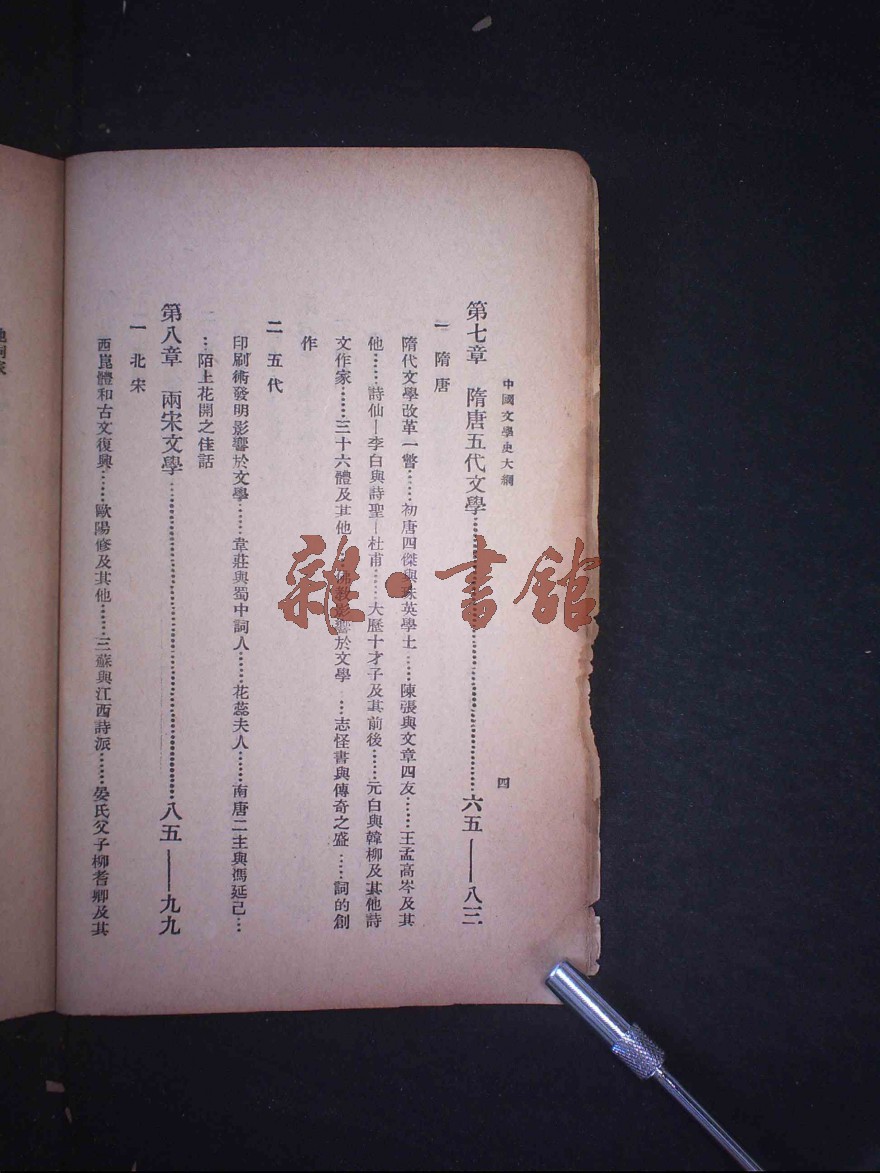 中國文學史大綱
四
第七章　隋唐五代文學……………………六五——八三
一　隋唐
隋代文學改革一瞥……初唐四傑與珠英學士……陳張與文章四友……王孟高岑及其
他……詩仙—李白與詩聖—杜甫……大歷十才子及其前後……元白與韓柳及其他詩
文作家……三十六體及其他…佛教影響於文學…志怪書與傳奇之盛……詞的創
作
二　五代
印刷術發明影響於文學……韋莊與蜀中詞人……花蕊夫人……南唐二主與馮延己…
…陌上花開之佳話
第八章　兩宋文學……………………八五——九九
一　北宋
西崑體和古文復興……歐陽修及其他……三蘇與江西詩派……晏氏父子柳耆卿及其
雜·書館